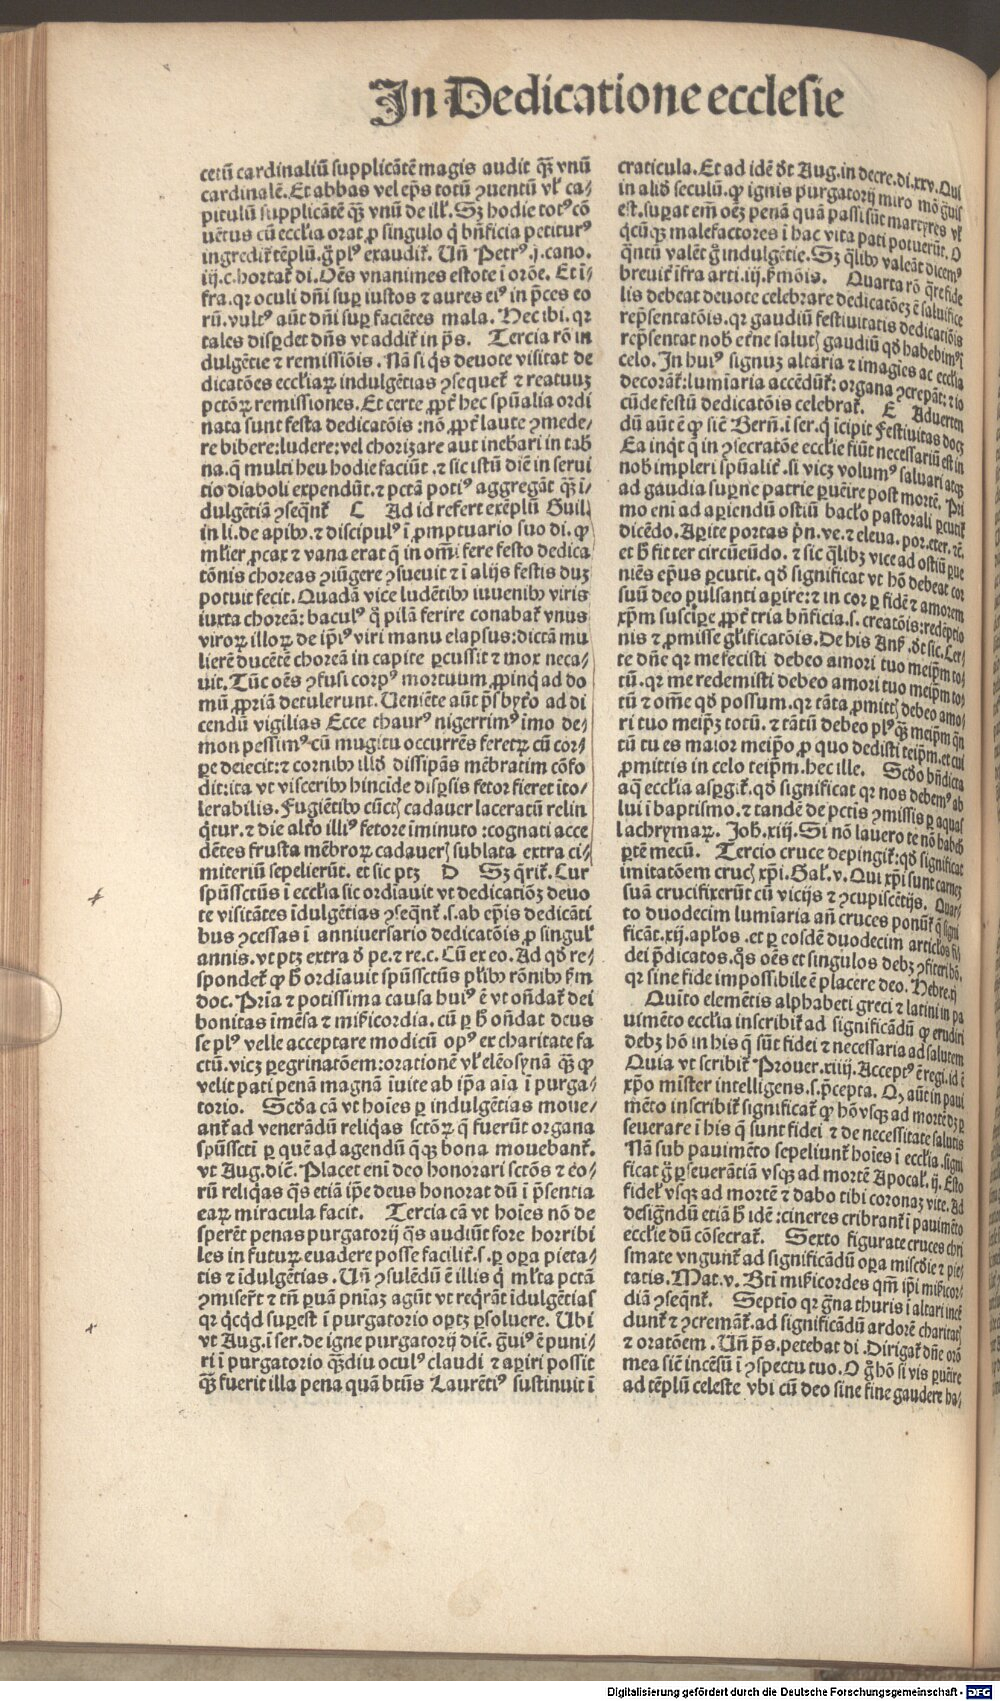 In Dedicatione ecclesie
cetū cardinaliū supplicātē magis audit qȝ̄ vnū
cardinalē. Et abbas vel ep̄s totū ꝯuentū vl̓ ca/
pitulū supplicātē qȝ̄ vnū de ill̓. Sȝ hodie totꝰ cō
uētus cū eccl̓ia orat ꝓ singulo q̇ bn̄ficia petiturꝰ
ingredit̓ tēplū. g̊ plꝰ exaudit̓. Un̄ Petrꝰ .j. cano.
iij. c. hortat̓ di. Oēs vnanimes estote ī orōe. Et ī/
fra. qr oculi dn̄i suꝑ iustos ⁊ aures eiꝰ in p̄ces eo
rū. vultꝰ aūt dn̄i suꝑ faciētes mala. Hec ibi. qr
tales disꝑdet dn̄s vt addit̓ in p̄s. Tercia rō in
dulgētie ⁊ remissiōis. Nā si q̇s deuote visitat de
dicatōes eccl̓iaꝝ indulgētias ꝯsequet̓ ⁊ reatuuȝ
pctōꝝ remissiones. Et certe ꝓpt̓ hec sp̄ualia ordi
nata sunt festa dedicatōis: nō ꝓpt̓ laute ꝯmede/
re bibere: ludere: vel chorizare aut inebriari in tab̓
na. q̄ multi heu hodie faciūt . ⁊ sic istū diē in serui
tio diaboli expendūt. ⁊ pctā potiꝰ aggregāt qȝ̄ ī/
dulgētiā ꝯseqn̄t̓ C Ad id refert exēplū Guil.
in li. de apibꝰ. ⁊ discipulꝰ ī ꝓmptuario suo di. ꝙ
ml̓ier ꝓcax ⁊ vana erat q̄ in om̄i fere festo dedica
tōnis choreas ꝯiūgere ꝯsueuit ⁊ ī alijs festis duȝ
potuit fecit. Quadā vice ludētibꝰ iuuenibꝰ viris
iuxta choreā: baculꝰ q̊ pilā ferire conabat̓ vnus
viroꝝ illoꝝ de ip̄iꝰ viri manu elapsus: dictā mu
lierē ducētē choreā in capite ꝑcussit ⁊ mox neca/
uit. Tūc oēs ꝯfusi corpꝰ mortuum ꝓpinq̄ ad do
mū ꝓpriā detulerunt. Ueniēte aūt p̄sbyt̓o ad di
cendū vigilias Ecce thaurꝰ nigerrimꝰ imo de/
mon pessimꝰ cū mugitu occurrēs feretꝝ cū cor/
pe deiecit: ⁊ cornibꝰ illd̓ dissipās mēbratim cōfo
dit: ita vt visceribꝰ hincide disꝑsis fetor fieret īto/
lerabilis. Fugiētibꝰ cūctꝭ cadauer laceratū relin
q̄tur. ⁊ die alt̓o illiꝰ fetore iminuto : cognati acce
dētes frusta mēbroꝝ cadauerꝭ sublata extra ci/
miteriū sepelierūt. et sic ptȝ D Sȝ q̄rit̓. Cur
spūssctūs ī eccl̓ia sic ordīauit vt dedicatiōȝ deuo
te visitātes īdulgētias ꝯseqn̄t̓ .s. ab ep̄is dedicāti
bus ꝯcessas ī anniuersario dedicatōis ꝓ singul̓
annis. vt ptȝ extra d̓ pe. ⁊ re. c. Cū ex eo. Ad qd̓ re/
spondet̓ ꝙ h̓ ordīauit spūssctūs pl̓ibꝰ rōnibꝰ ẜm
doc. Prīa ⁊ potissima causa huiꝰ ē vt on̄dat̓ dei
bonitas īmēsa ⁊ mīs̓icordia. cū ꝑ h̓ on̄dat deus
se plꝰ velle acceptare modicū opꝰ ex charitate fa
ctū. vicȝ ꝑegrinatōem: orationē vl̓ elēosynā qȝ̄ ꝙ
velit pati penā magnā īuite ab ip̄a aīa ī purga/
torio. Scd̓a cā vt hoīes ꝑ indulgētias moue/
ant̓ ad venerādū reliq̇as sctōꝝ q̄ fuerūt organa
spūsscti ꝑ quē ad agendū q̄qȝ bona mouebant̓.
vt Aug. dic̄. Placet enī deo honorari sctōs ⁊ eo/
rū reliq̇as q̇s etiā ip̄e deus honorat dū ī p̄sentia
eaꝝ miracula facit. Tercia cā vt hoīes nō de
sperēt penas purgatorij q̇s audiūt fore horribi
les in futuꝝ euadere posse facilit̓ .s. ꝑ oꝑa pieta/
tis ⁊ īdulgētias. Un̄ ꝯsulēdū ē illis q̇ ml̓ta pctā
ꝯmiser̄t ⁊ tn̄ puā pn̄iaȝ agūt vt reqrāt īdulgētias
qr q̇cq̇d suꝑest ī purgatorio optȝ ꝑsoluere. Ubi
vt Aug. ī ser. de igne purgatorij dic̄. g̊uiꝰ ē puni/
ri ī purgatorio qȝ̄diu oculꝰ claudi ⁊ aꝑiri possit
qȝ̄ fuerit illa pena quā btūs Laurētiꝰ sustinuit ī
craticula. Et ad idē d̓t Aug. in decre. di. xxv. Qui
in aliō seculū. ꝙ ignis purgatorij miro mō g̊uis
est. suꝑat em̄ oēȝ penā quā passi sūt martyres vl̓
q̄cūqȝ malefactores ī hac vita pati potuerūt. O
q̄ntū valēt g̊ indulgētie. Sȝ q̄libꝰ valeāt dicemꝰ
breuit̓ īfra arti. iij. ẜmōis. Quarta rō q̄re fide
lis debeat deuote celebrare dedicatōeȝ ē saluifice
rep̄sentatōis. qr gaudiū festiuitatis dedicatiōis
rep̄sentat nob̓ et̓ne salutꝭ gaudiū qd̓ habebimꝰ ī
celo. In huiꝰ signuȝ altaria ⁊ imagīes ac eccl̓ia
decorāt̓: lumīaria accēdūt̓: organa ꝯcrepāt: ⁊ io
cūde festū dedicatōis celebrat̓. E Aduerten
dū aūt ē ꝙ sic̄ Bern̄. ī ser. q̄ īcipit Festiuitas docȝ
Ea inqt q̄ in ꝯsecratōe eccl̓ie fiūt necessariū est in
nob̓ impleri sp̄ualit̓ . si vicȝ volumꝰ saluari atqȝ
ad gaudia suꝑne patrie ꝑuēire post mortē. Pri
mo eni ad aꝑiendū ostiū bacl̓o pastorali ꝑcutit̓
dicēdo. Aꝑite portas p̄n. ve. ⁊ eleua. por. eter. ⁊c̄.
et h̓ fit ter circūeūdo. ⁊ sic q̄libȝ vice ad ostiū ꝑue
niēs ep̄us ꝑcutit. qd̓ significat vt hō debeat cor
suū deo pulsanti aꝑire: ⁊ in cor ꝑ fidē ⁊ amorem
xp̄m suscipe ꝓpt̓ tria bn̄ficia .s. creatōis: redēptio
nis ⁊ ꝓmisse gl̓ificatōis. De his Ans̓. d̓t sic. Cer/
te dn̄e qr me fecisti debeo amori tuo meip̄m to/
tū. qr me redemisti debeo amori tuo meip̄m to/
tū ⁊ om̄e qd̓ possum. qr tāta ꝓmittꝭ debeo amo/
ri tuo meip̄ȝ totū. ⁊ tātū debeo plꝰ qȝ̄ meip̄m q̄n
tū tu es maior meip̄o ꝓ quo dedisti teip̄m. et cui
ꝓmittis in celo teip̄m. hec ille. Scd̓o bn̄dicta
aq̄ eccl̓ia asꝑgit̓. qd̓ significat qr nos debemꝰ ab
lui ī baptismo. ⁊ tandē de pctis ꝯmissis ꝑ aquas
lachrymaꝝ. Joh̓. xiij. Si nō lauero te nō habeb̓
ꝑtē mecū. Tercio cruce depingit̓: qd̓ significat
imitatōem crucꝭ xp̄i. Gal̓. v. Qui xp̄i sunt carneȝ
suā crucifixerūt cū vicijs ⁊ ꝯcupiscētijs. Quar/
to duodecim lumīaria an̄ cruces ponūt̓ q̄ signi
ficāt. xij. apl̓os . et ꝑ eosdē duodecim articl̓os fi/
dei p̄dicatos. q̊s oēs et singulos debȝ ꝯfiteri hō.
qr sine fide impossibile ē placere deo. Hebre. ij
Quīto elemētis alphabeti greci ⁊ latini in pa
uimēto eccl̓ia inscribit̓ ad significādū ꝙ erudiri
debȝ hō in his q̄ sūt fidei ⁊ necessaria ad salutem
Quia vt scribit̓ Prouer. xiiij. Acceptꝰ ē regi. id ē
xp̄o mīster intelligens .s. p̄cepta. Q, aūt in paui
mēto inscribit̓ significat̓ ꝙ hō vsqȝ ad mortē dȝ ꝑ
seuerare ī his q̄ sunt fidei ⁊ de necessitate salutis
Nā sub pauimēto sepeliunt̓ hoīes ī eccl̓ia. signi
ficat g̊ ꝑseuerātiā vsqȝ ad mortē Apocal̓. ij. Esto
fidel̓ vsqȝ ad mortē ⁊ dabo tibi coronaȝ vite. Ad
designdū etiā h̓ idē: cineres cribrant̓ ī pauimēto
eccl̓ie dū cōsecrat̓. Sexto figurate cruces chri
smate vngunt̓ ad significādū oꝑa miscd̓ie ⁊ pie/
tatis. Mat. v. Bt̄i mis̓icordes qm̄ ip̄i mis̓icor/
diā ꝯseqn̄t̓. Septīo qr g̊na thuris ī altari incē
dunt̓ ⁊ ꝯcremāt̓. ad significādū ardorē charitatꝭ
⁊ oratōem. Un̄ p̄s. petebat di. Dirigat̓ dn̄e orō
mea sic̄ incēsū ī ꝯspectu tuo. O g̊ hō si vis ꝑuēire
ad tēplū celeste vbi cū deo sine fine gaudere ha/
Digitalisierung gefördert durch die Deutsche Forschungsgemeinschaft - DFG